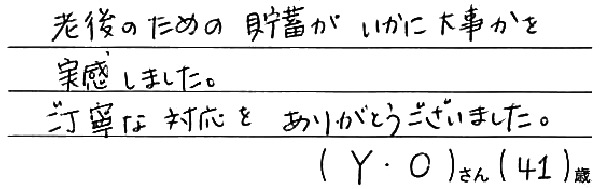 老後のための貯蓄がいかに大事かを
実感しました。
ご丁寧な対応をありがとうございました。
(Y・O)さん(41)歳